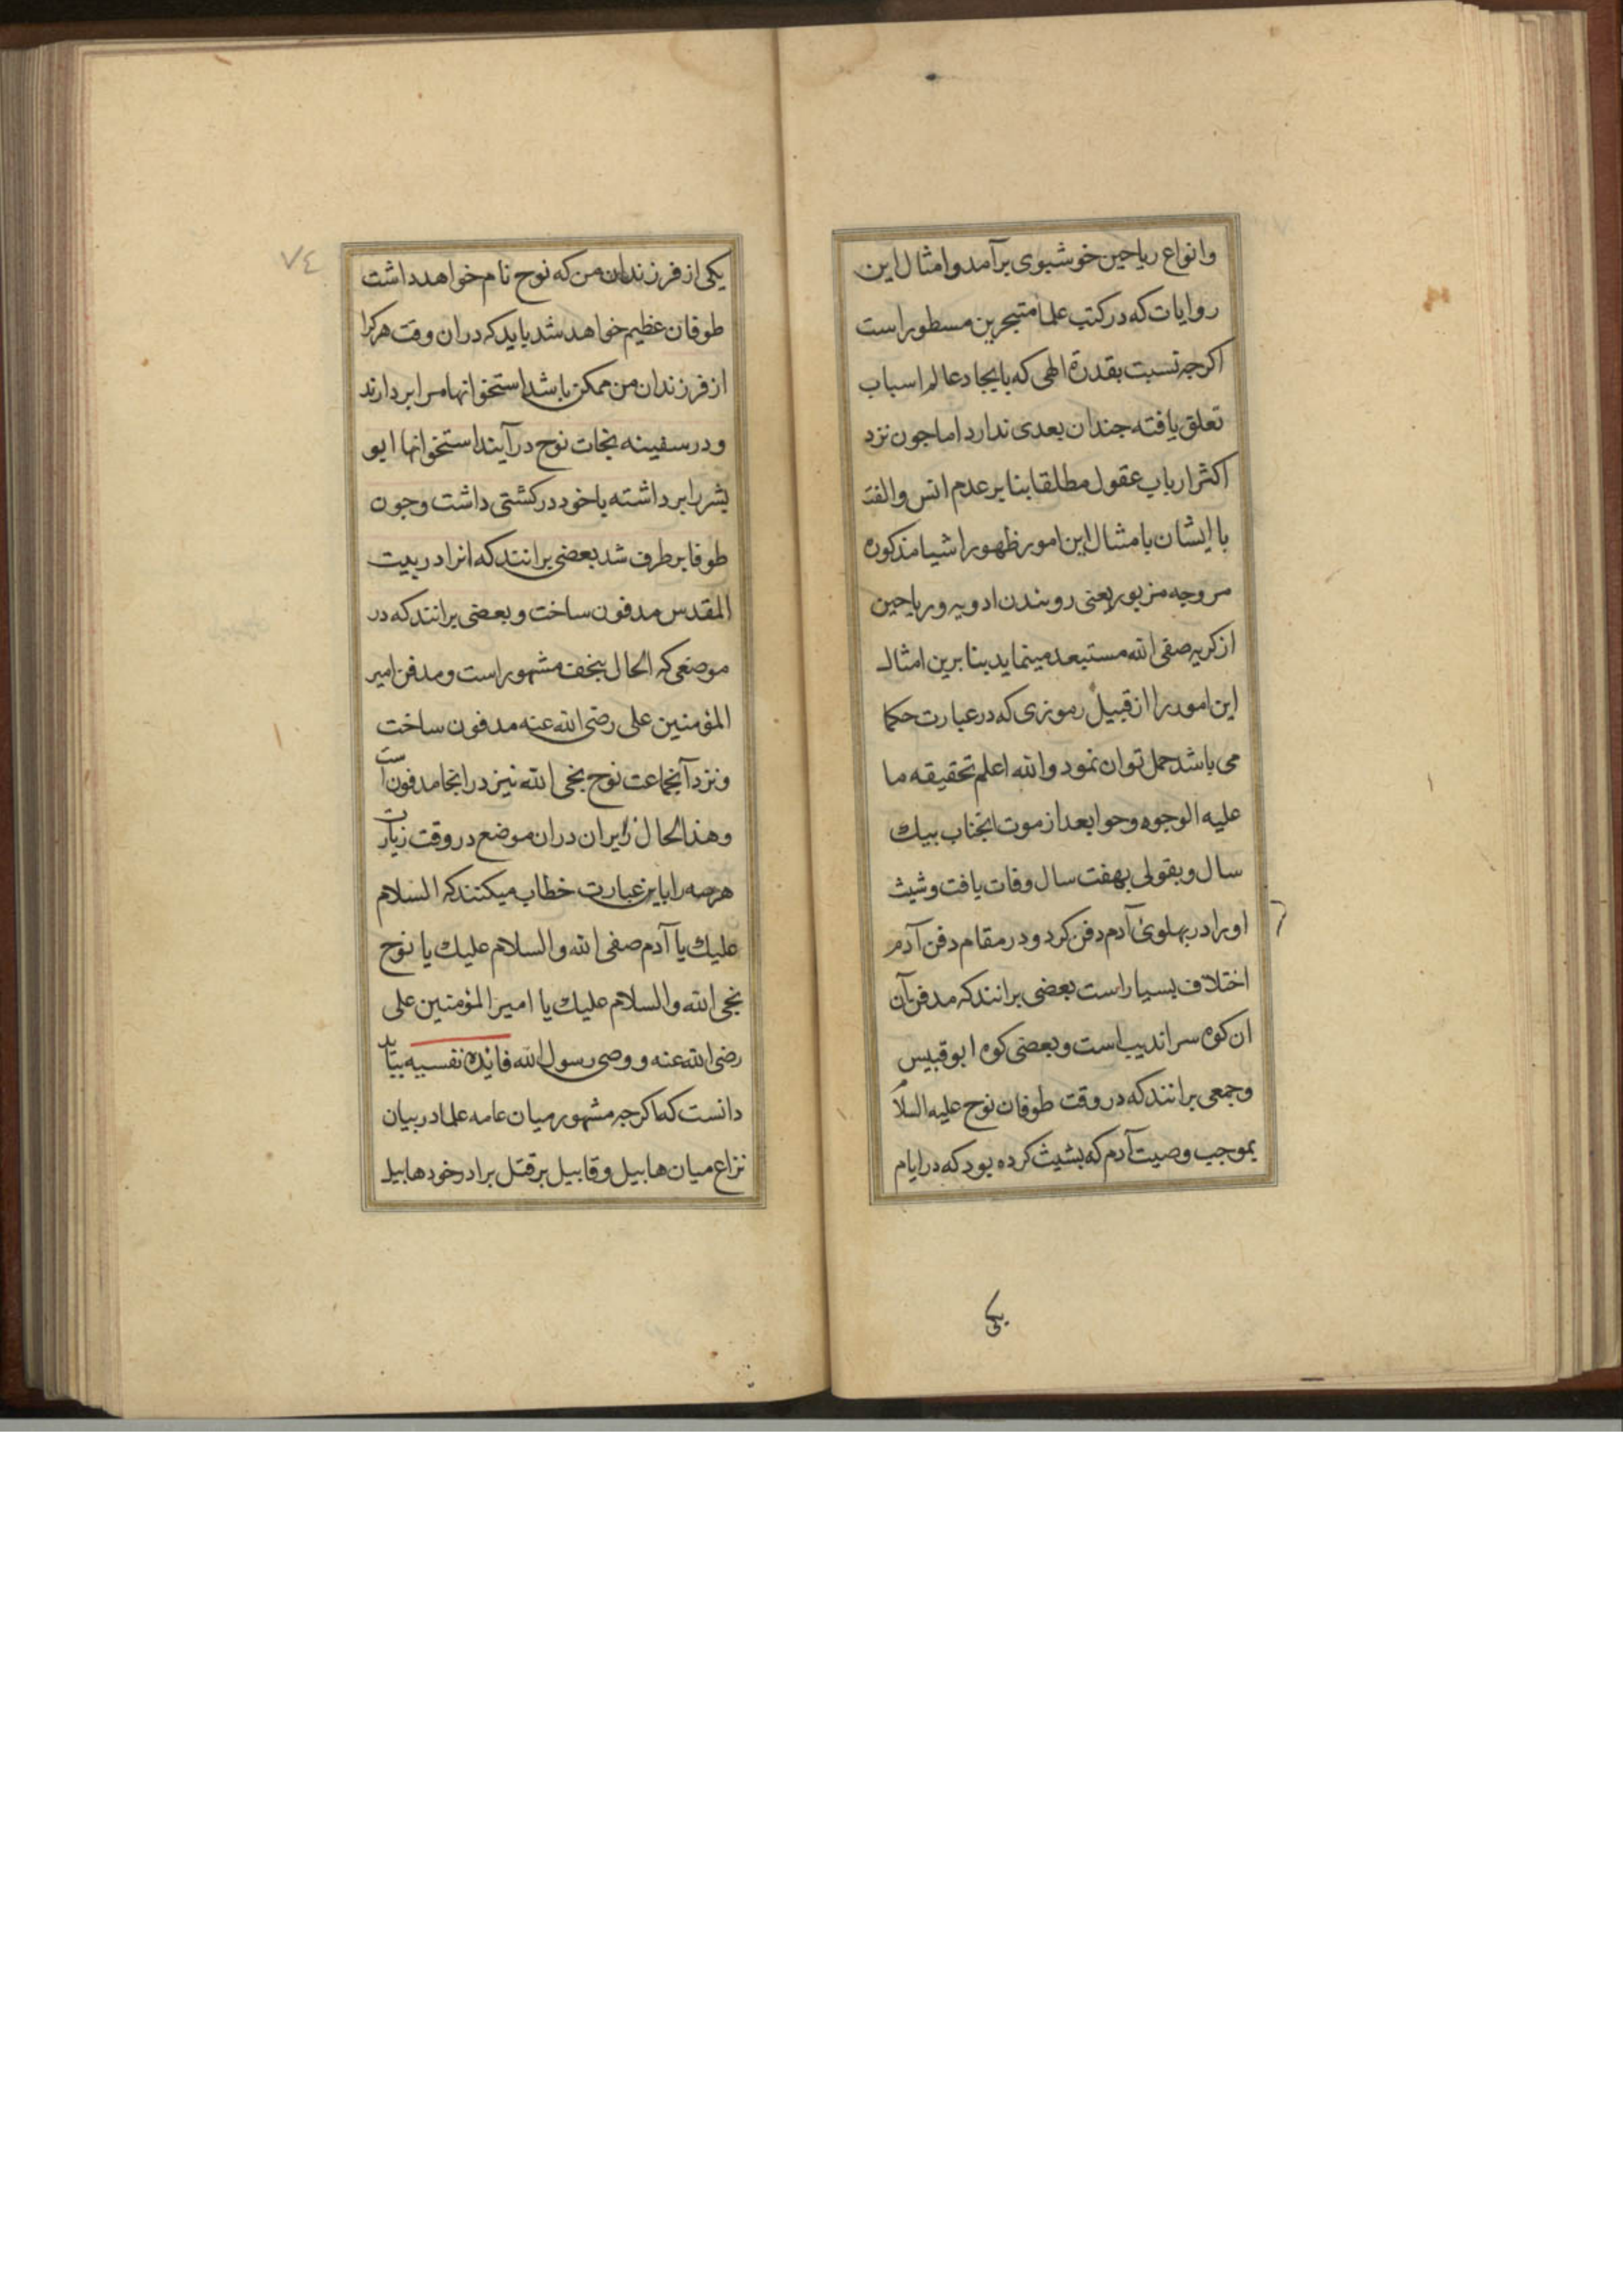 وانواع ریاحین خوشبوی برآمد وامثال این
روایات که درکتب علما متبحرین مسطور است
اکرجه نسبت بقدرة الهی که بایجاد عالم اسباب
تعلق یافته جندان بعدی ندارد اماجون نزد
اکثر ارباب عقول مطلقا بنابر عدم انس والفت
با ایشان بامثال این امور ظهور اشیا مذکوره
بر وجه مزبور یعنی روبندن ادویه وریاحین
ازکریه صفی الله مستبعد مینماید بنابرین امثال
این امور را از قبیل رموزی که درعبارت حکما
می باشد حمل توان نمود والله اعلم تحقیقه ما
علیه الوجوه وحوا بعد ازموت انجناب بیك
سال وبقولی بهفت سال وفات یافت وشیث
اورا در بهلوئ آدم دفن کرد ودر مقام دفن آدم
اختلاف بسیار است بعضی برانند که مدفن آن
ان کوه سراندیب است وبعضی کوه ابوقبیس
وجمعی برانند که در وقت طوفان نوح علیه السلام
بموجب وصیت آدم که بشیث کرده بود که در ایام
یکی
٧٤
یکی از فرزندان من که نوح نام خواهد داشت
طوفان عظیم خواهد شد باید که دران وقت هرکرا
از فرزندان من ممکن باشد استخوانها مرا بردارند
ودر سفینه نجات نوح درآیند استخوانها ابو
بشر را برداشته باخود درکشتی داشت وجون
طوفا برطرف شد بعضی برانند که انرا در بیت
المقدس مدفون ساخت وبعضی برانند که در
موضعی که الحال بنجف مشهور است ومدفن امیر
المؤمنین علی رضی الله عنه مدفون ساخت
ونزد آنجماعت نوح نجی الله نیز درانجا مدفون است
وهذا الحال زایران دران موضع در وقت زیارت
هرسه را باین عبارت خطاب میکنند که السلام
علیك یا آدم صفی الله والسلام علیك یا نوح
نجی الله والسلام علیك یا امیر المؤمنین علی
رضی الله عنه و وصی رسول الله فائده نفسیه بباید
دانست که اکرجه مشهور میان عامه علما در بیان
نزاع میان هابیل وقابیل بر قتل برادر خود هابیل